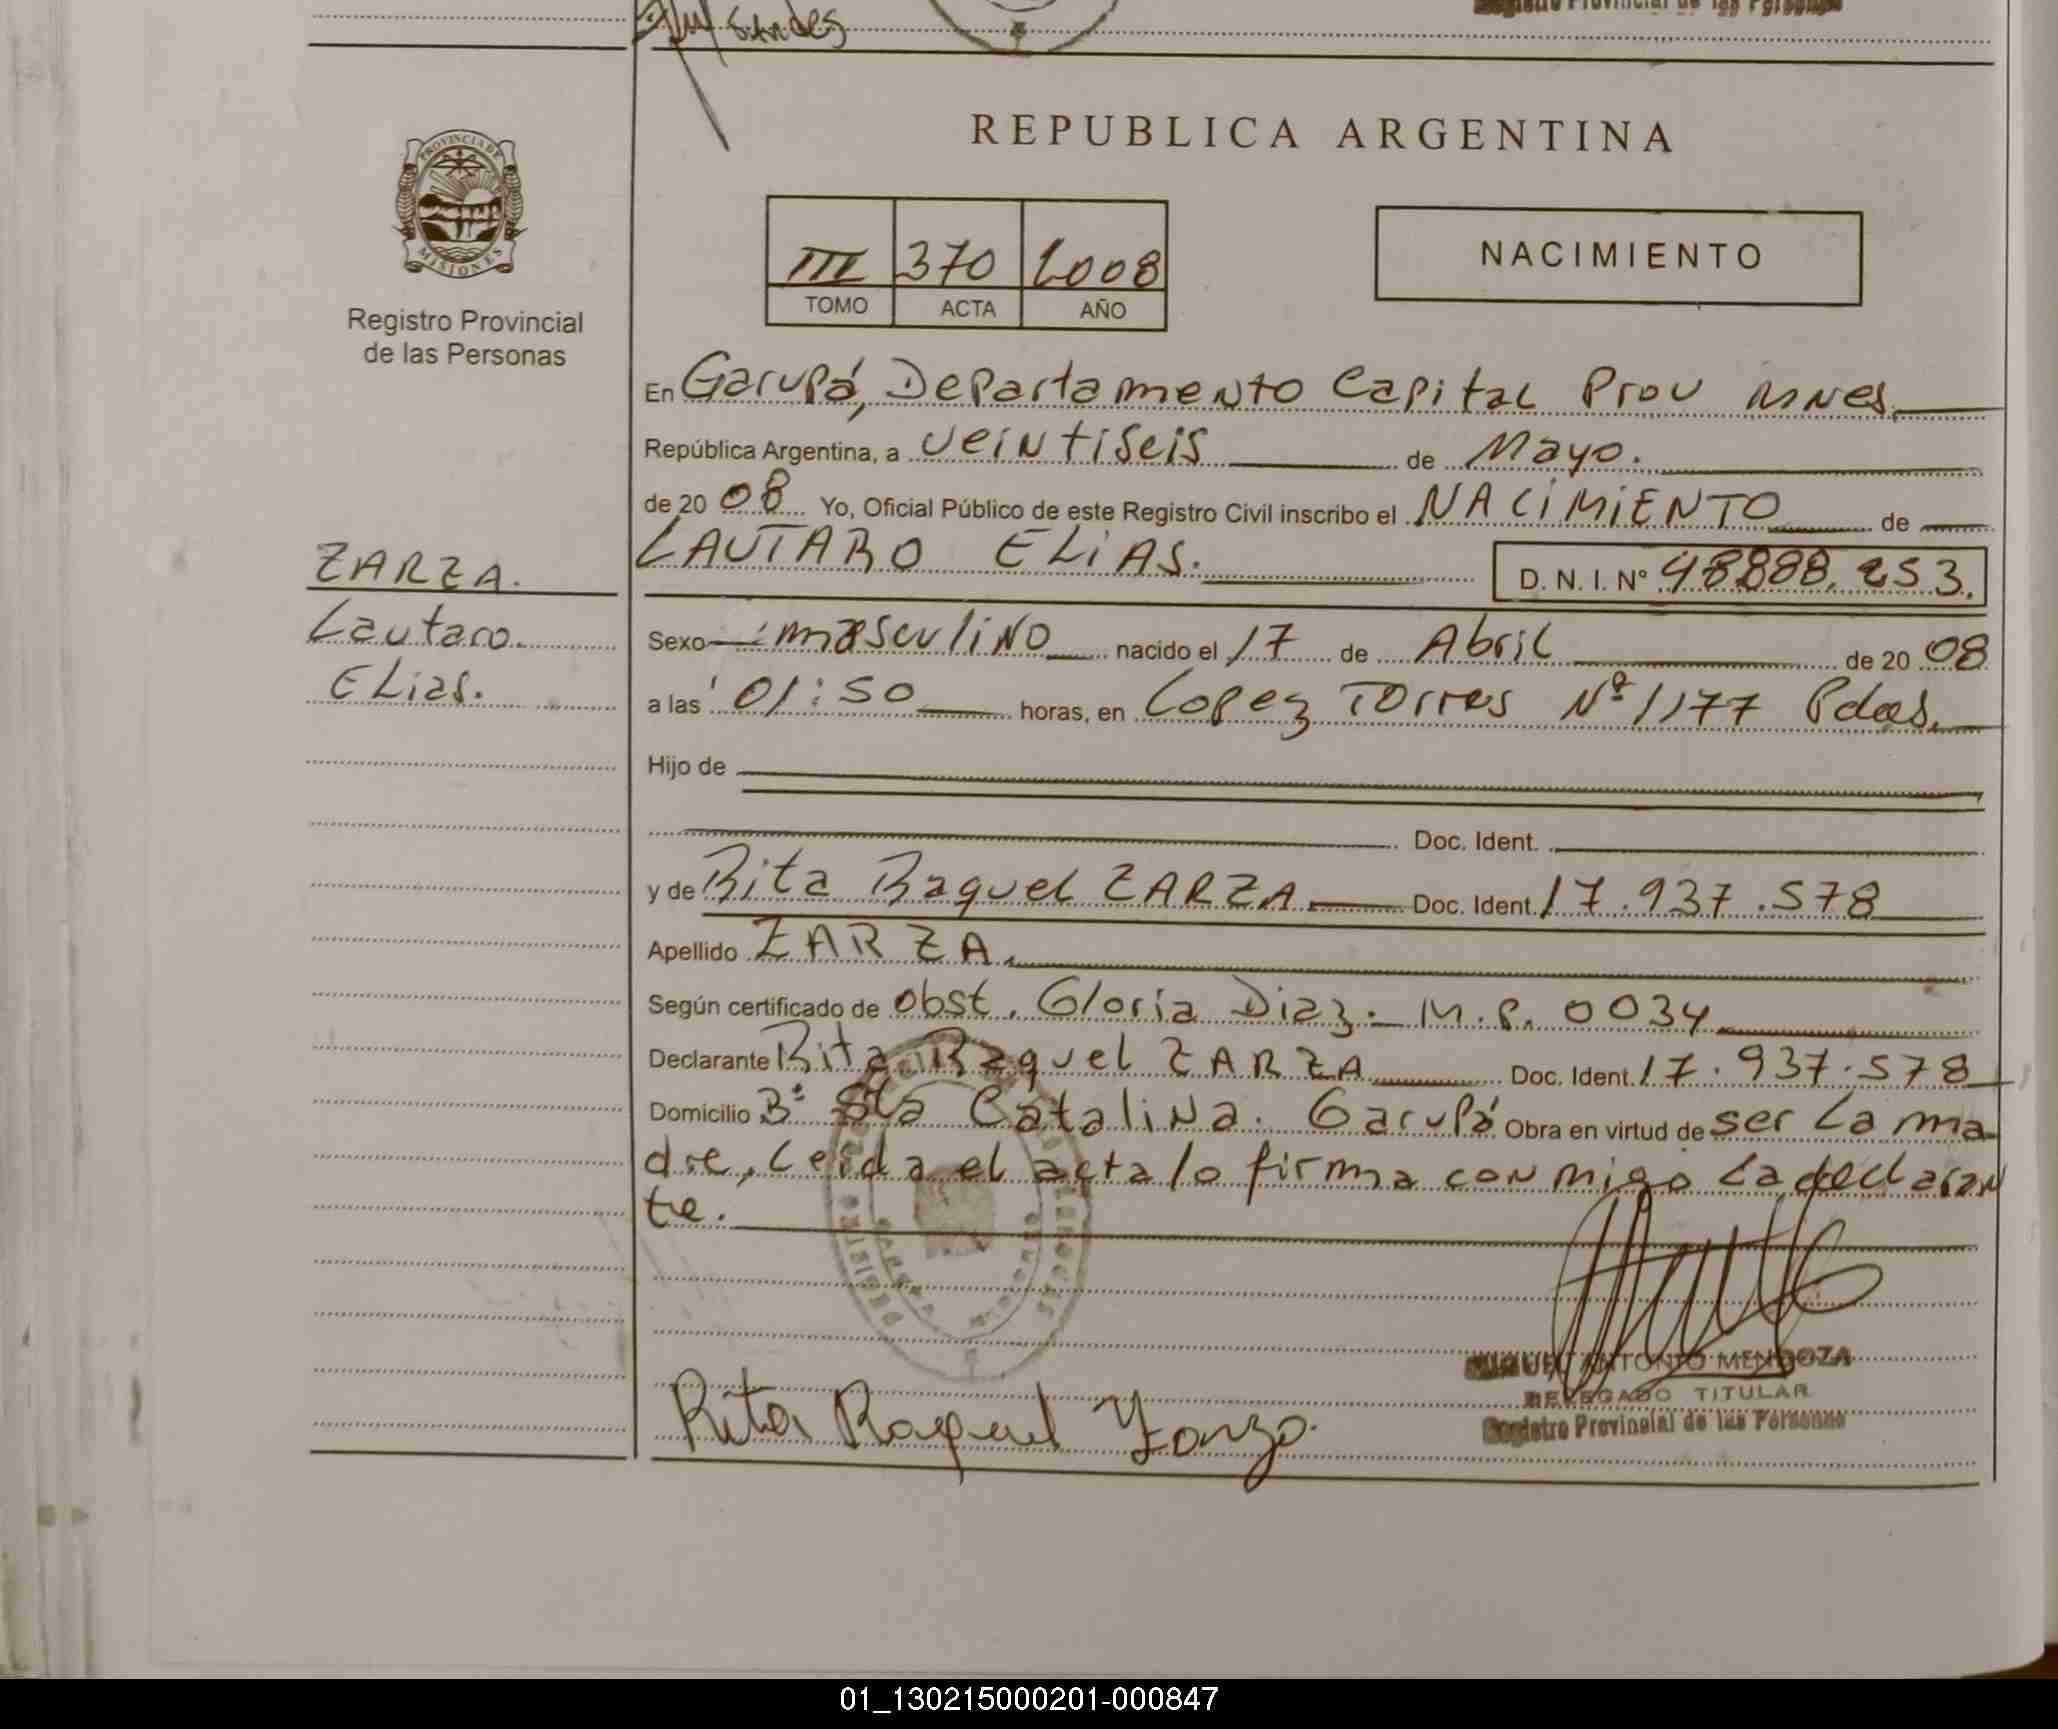 Registro Provincial de las Personas
REPUBLICA ARGENTINA
PROVINCIA DE
MISIONES
Registro Provincial
de las Personas
III 370 2008
TOMO ACTA AÑO
NACIMIENTO
En Garupá, Departamento Capital Prov Mnes
República Argentina, a veintiseis de Mayo.
de 20 08 Yo, Oficial Público de este Registro Civil inscribo el NACIMIENTO de
LAUTARO ELIAS. D. N. I. Nº 48.888.253.
ZARZA.
Lautaro.
Elias.
Sexo masculino nacido el 17 de Abril de 20 08
a las 01:50 horas, en Lopez Torres Nº 1177 Pdas.
Hijo de
Doc. Ident.
y de Rita Raquel ZARZA Doc. Ident. 17.937.578
Apellido ZARZA.
Según certificado de obst. Gloria Diaz. M.P. 0034
Declarante Rita Raquel ZARZA Doc. Ident. 17.937.578
Domicilio Bº Sta Catalina. Garupá Obra en virtud de ser la ma
dre, leida el acta lo firma conmigo la declaran
te.
MIGUEL ANTONIO MENDOZA
DELEGADO TITULAR
Registro Provincial de las Personas
Rita Raquel Zarza.
01_130215000201-000847